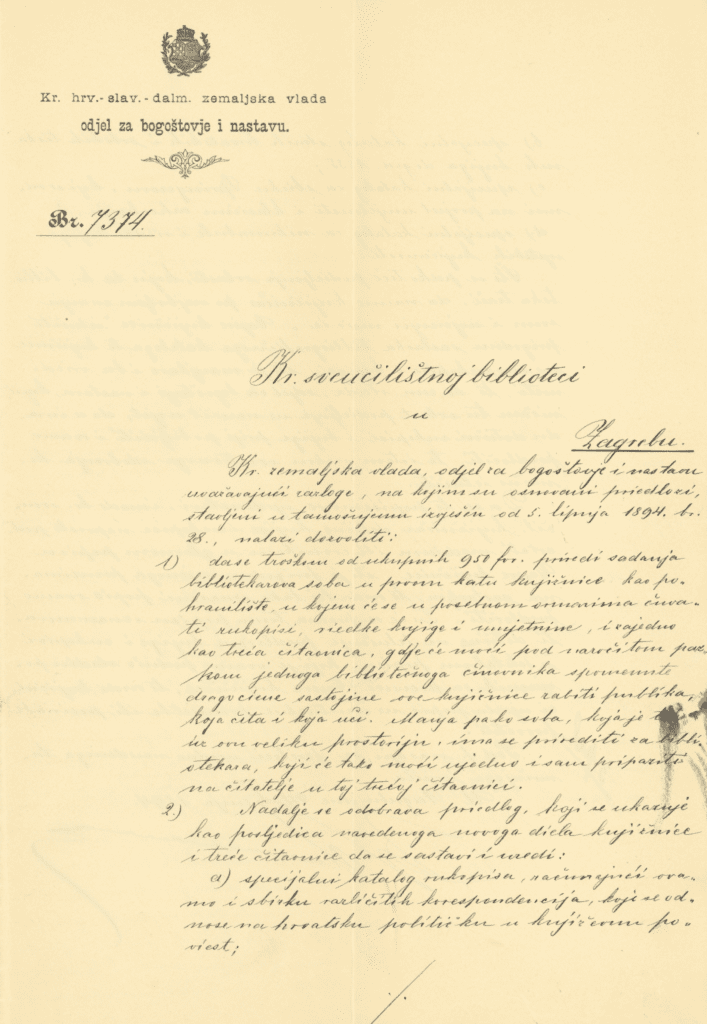 Kr. hrv.-slav.-dalm. zemaljska vlada
odjel za bogoštovje i nastavu.
Br. 7374.
Kr. sveučilištnoj biblioteci
u
Zagrebu.
Kr. zemaljska vlada, odjel za bogoštovje i nastavu
uvažavajući razloge, na kojim su osnovani priedlozi,
stavljeni u tamošnjemu izvješću od 5. lipnja 1894. br.
28., nalazi dozvoliti:
1) da se troškom od ukupnih 950 for. priredi sadanja
bibliotekareva soba u prvom katu knjižnice kao po-
hranilište, u kojem će se u posebnom ormarima čuva-
ti rukopisi, riedke knjige i umjetnine, i zajedno
kao treća čitaonica, gdje će moći pod naročitom paz-
kom jednoga bibliotečnoga činovnika spomenute
dragociene sastojine ove knjižnice rabiti publika,
koja čita i koja uči. Manja pako soba, koja je
uz ovu veliku prostoriju, ima se prirediti za bibli-
otekara, koji će tako moći ujedno i sam pripaziti
na čitatelje u toj trećoj čitaonici.
2.) Nadalje se odobrava priedlog, koji se ukazuje
kao posljedica navedenoga novoga diela knjižnice
i treće čitaonice da se sastavi i uredi:
a) specijalni katalog rukopisa, računajući ova-
mo i sbirku različitih korespondencija, koje se od-
nose na hrvatsku političku u književnu po-
viest;
./.